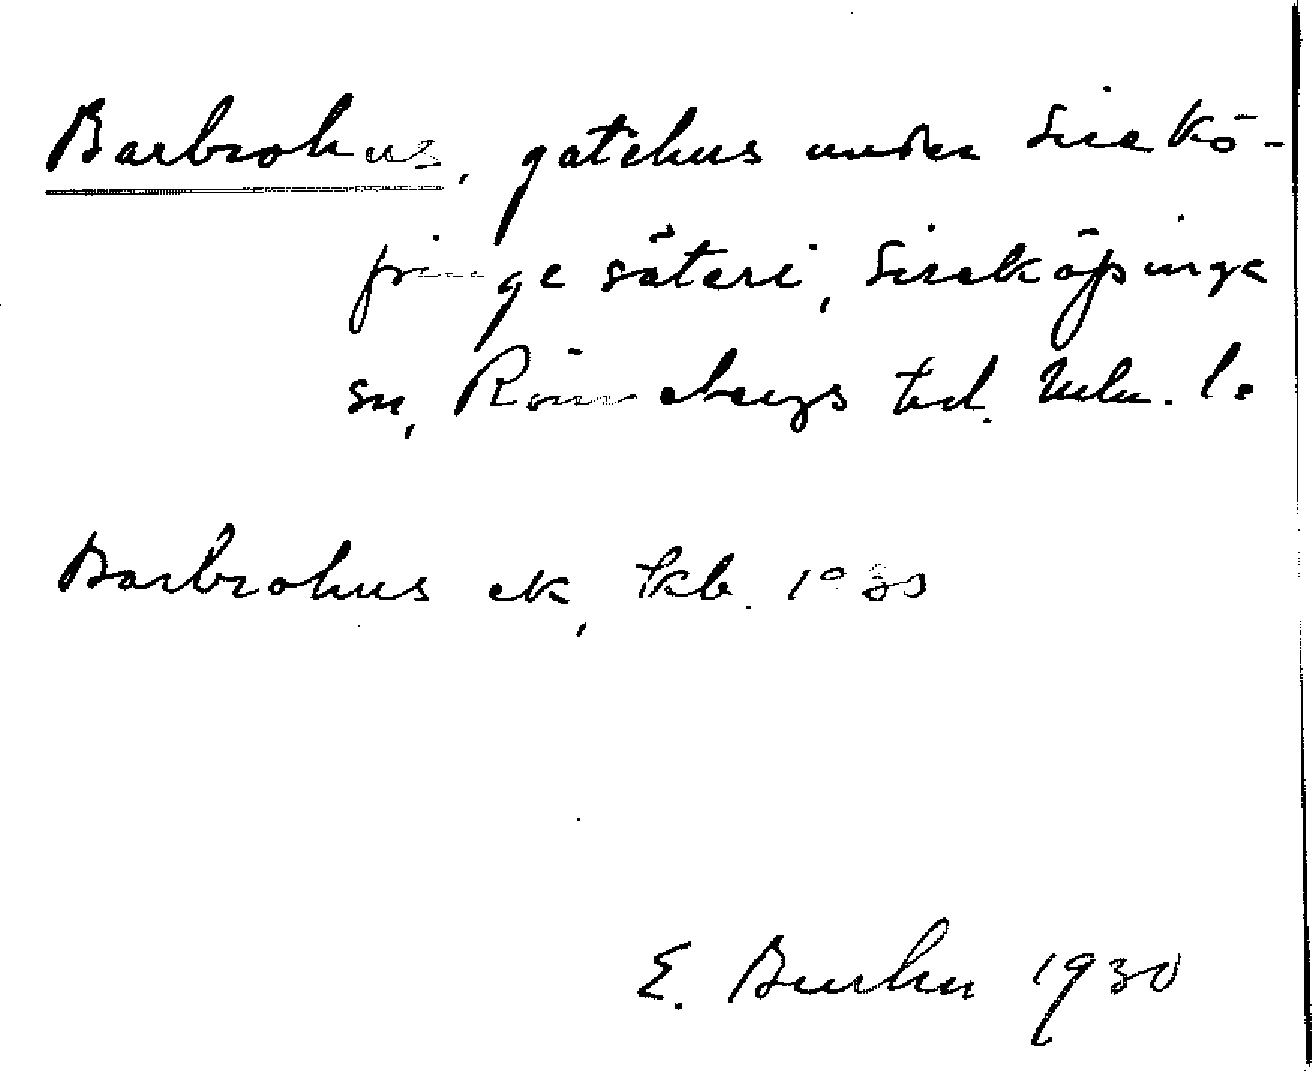 Barbrohus, gatehus under Sirekö-
pinge säteri, Sireköpinge
sn, Rönnebergs hd. Mlm. l.
Barbrohus ek, 1930
E. 1930